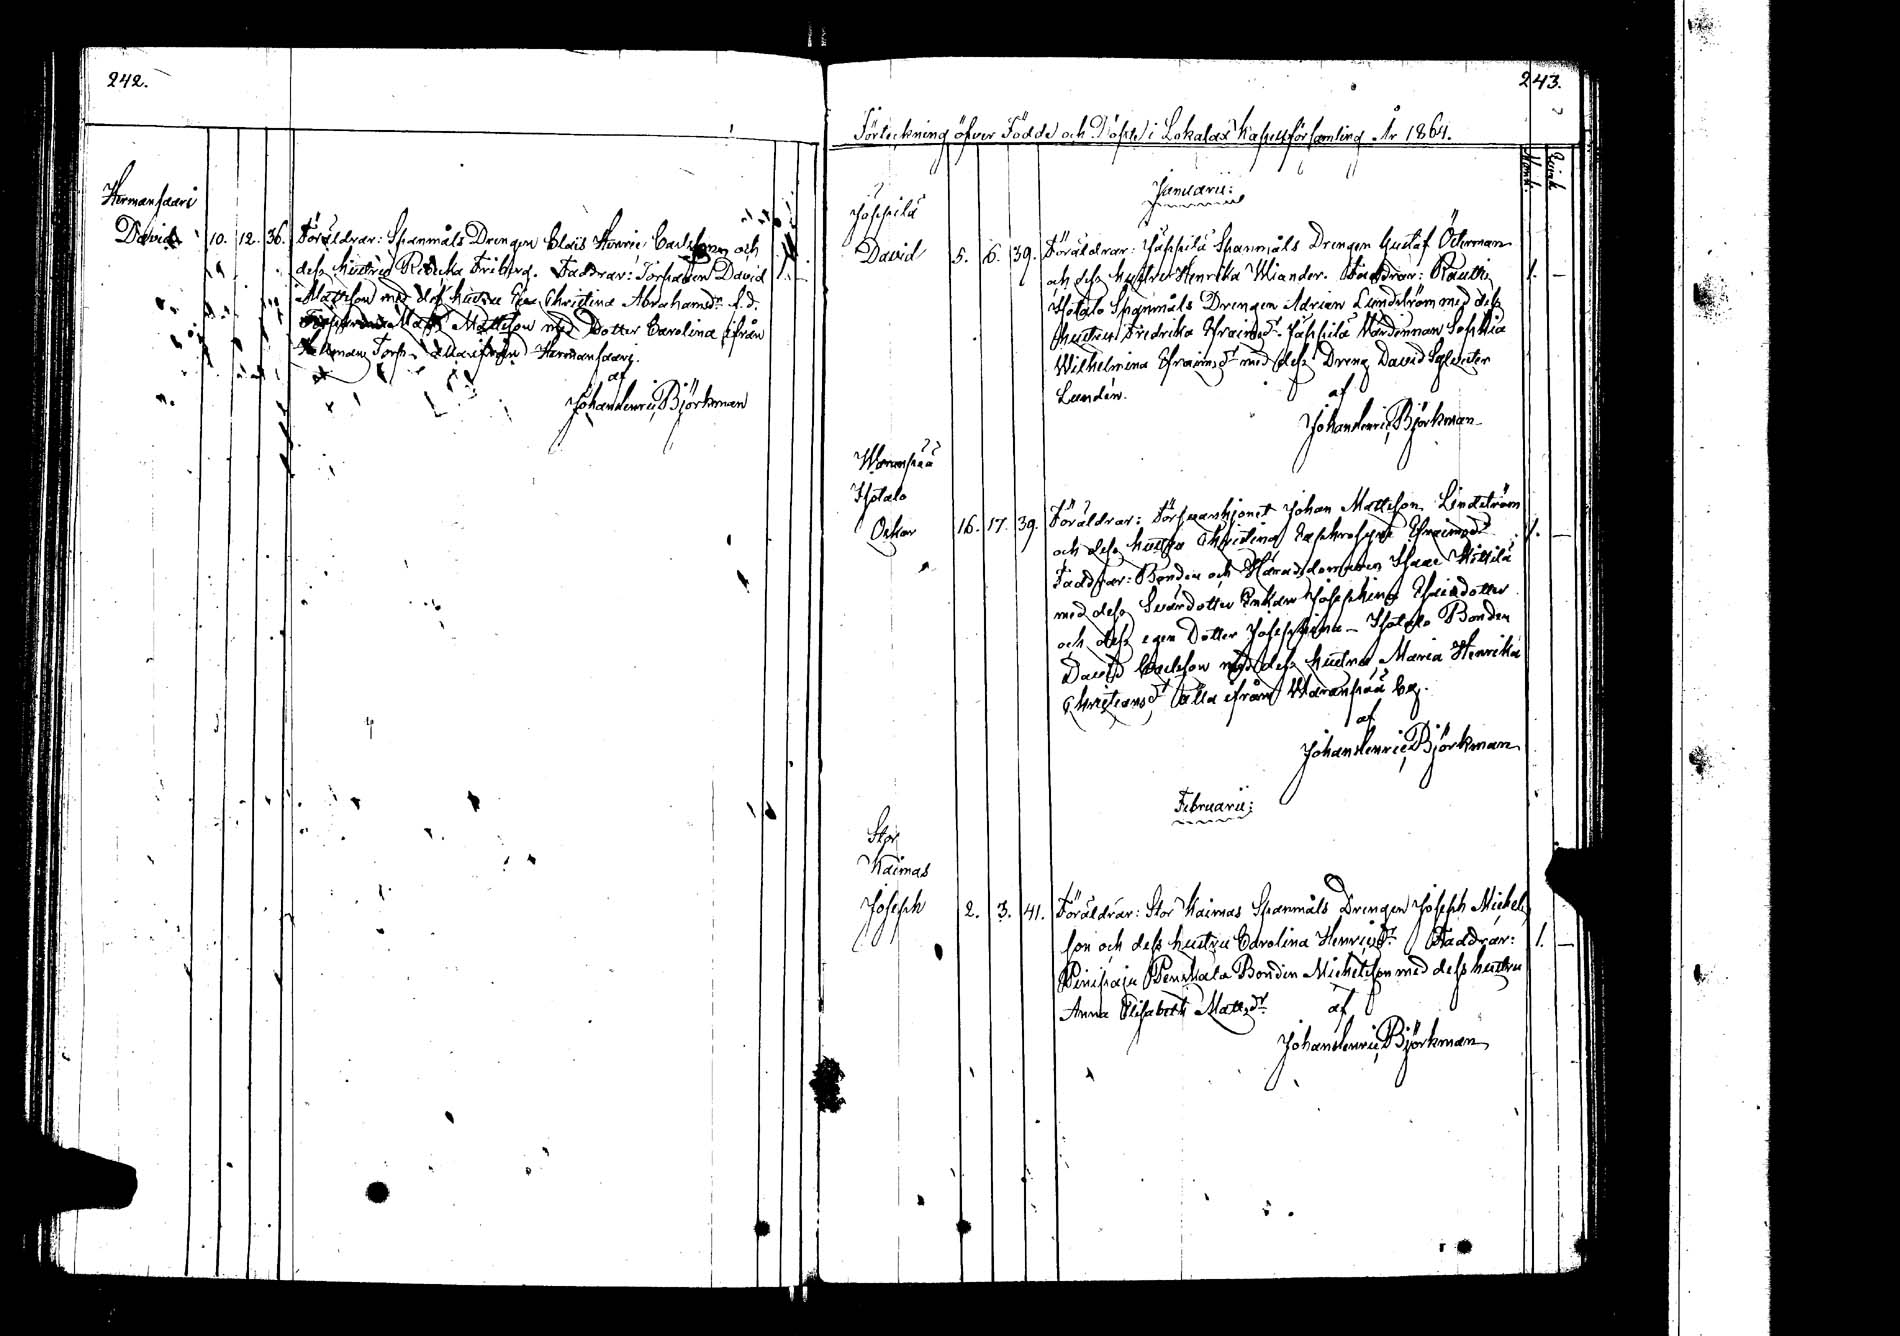 242.
Hermansaari
David 10. 12. 36. Föräldrar: Spanmåls Drengen Clais Henric Carlsson och
dess hustru Rebecka Friberg. Faddrar: Torparen David 1. –
Mattsson med dess hustru Eva Christina Abrahamsdr
Matts Mattsson med Dotter Carolina ifrån
Torp. alla ifrån Hermansaari.
af
Johan Henric Björkman
243.
Förteckning öfver Födde och Döpte i Lokalax Kapellförsamling År 1864.
Mank. Qvink.
Januarii:
Jäppilä
David 5. 6. 39. Föräldrar: Jäppilä Spanmåls Drengen Gustaf Österman
och dess hustru Henrika Wiander. Faddrar: Rautila 1. –
Isotalo Spanmåls Drengen Adrian Lundström med dess
hustru Fredrika Efraimsdr Jäppilä Värdinnan Sophia
Wilhelmina Efraimsdr med dess Dreng David Sylvester
Lundén.
af
Johan Henric Björkman
Waranpää
Isotalo
Oskar 16. 17. 39. Föräldrar: Försvarshjonet Johan Mattsson Lindström
och dess hustru Christina Euphrosyne Efraimsdr 1. –
Faddrar: Bonden och Häradsdomaren Isaac Kittilä
med dess Svärdotter Enkan Josephina Esaiædotter
och dess egen Dotter Josephina – Isotalo Bonden
David Carlsson med dess hustru Maria Henrika
Christiansdr alla ifrån Waranpää by.
af
Johan Henric Björkman
Februarii:
Stor
Kaimas
Joseph 2. 3. 41. Föräldrar: Stor Kaimas Spanmåls Drengen Joseph Michels
son och dess hustru Carolina Henricsdr. Faddrar: 1. –
Pinipaju Penkala Bonden Michelsson med dess hustru
Anna Elisabeth Mattsdr.
af
Johan Henric Björkman